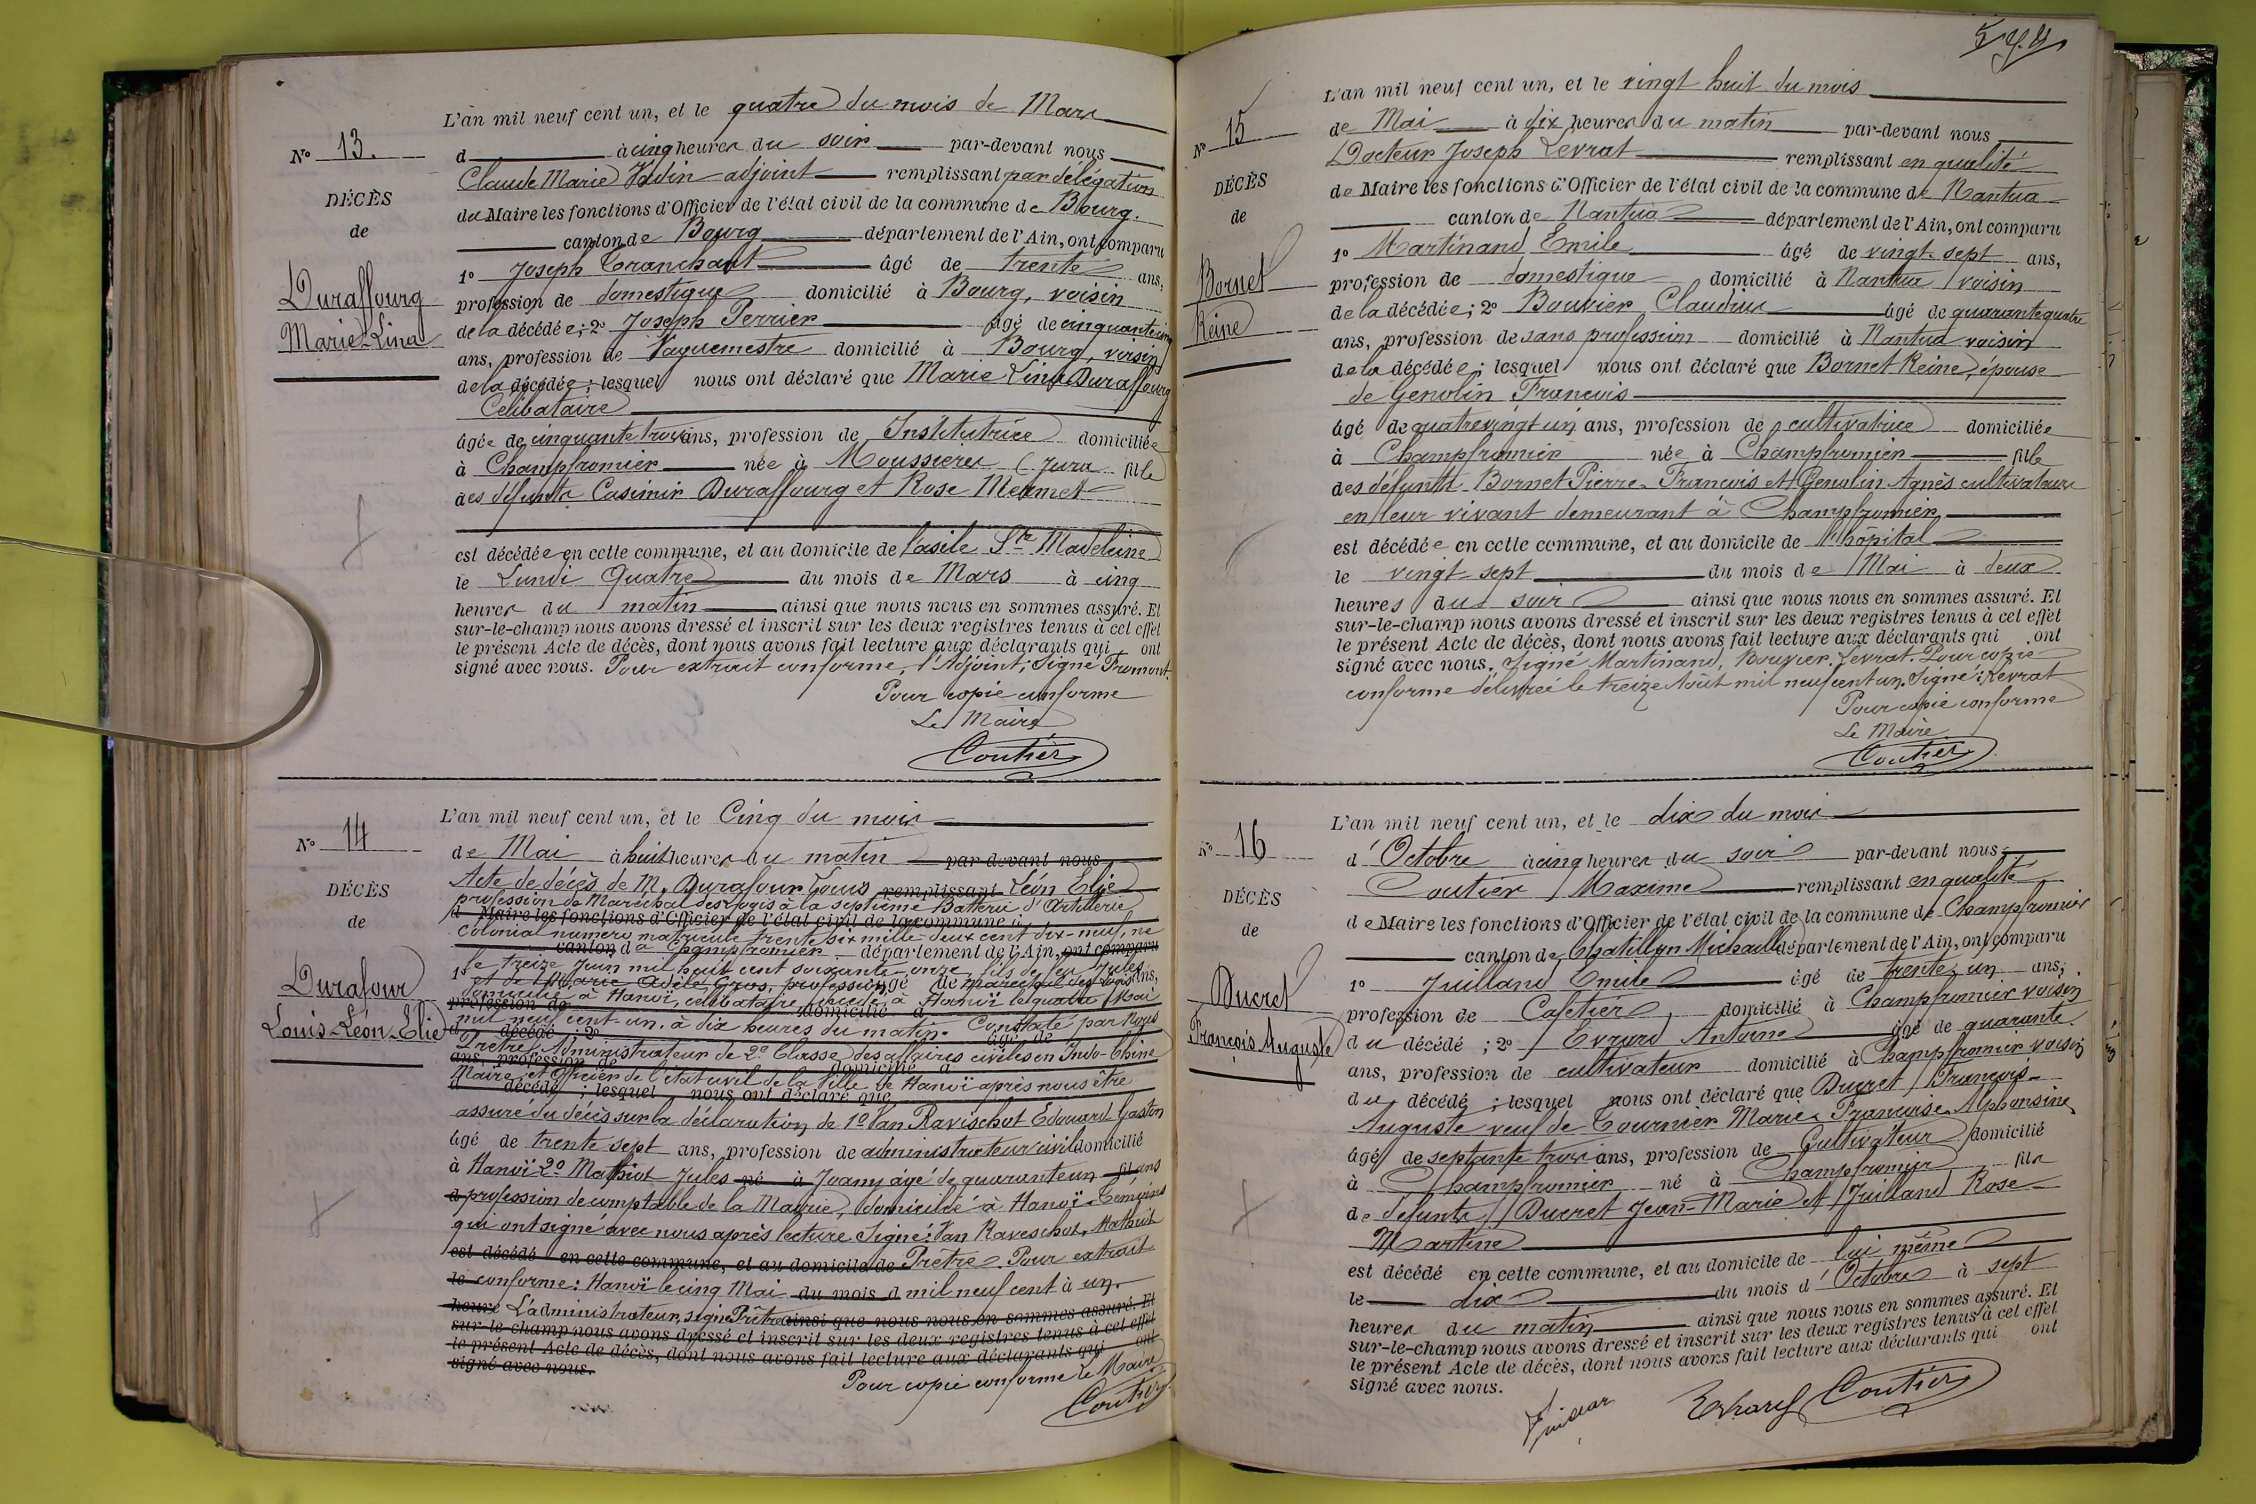 L'an mil neuf cent un, et le quatre du mois de Mars
N° 13.
d à cinq heures du soir par-devant nous
Claude Marie adjoint remplissant par délégation
DÉCÈS
du Maire les fonctions d'Officier de l'état civil de la commune de Bourg.
de
canton de Bourg département de l'Ain, ont comparu
1° Joseph Tranchant âgé de trente ans,
Duraffourg
profession de domestique domicilié à Bourg, voisin
Marie-Lina
de la décédée ; 2° Joseph Perrier âgé de cinquante un
ans, profession de Vaguemestre domicilié à Bourg, voisin
de la décédée ; lesquels nous ont déclaré que Marie Lina Duraffourg
Célibataire
âgée de cinquante trois ans, profession de Institutrice domiciliée
à Champfromier née à Moussieres (Jura fille
des défunts Casimir Duraffourg et Rose Mermet
est décédée en cette commune, et au domicile de l'asile Ste Madeleine
le Lundi Quatre du mois de Mars à cinq
heures du matin ainsi que nous nous en sommes assuré. Et
sur-le-champ nous avons dressé et inscrit sur les deux registres tenus à cet effet
le présent Acte de décès, dont nous avons fait lecture aux déclarants qui ont
signé avec nous. Pour extrait conforme, l'Adjoint, Signé Fromont.
Pour copie conforme
Le Maire
Coutier
L'an mil neuf cent un, et le Cinq du mois
N° 14
de Mai à huit heures du matin par-devant nous
Acte de décès de M. Durafour Louis remplissant Léon Elie
DÉCÈS
profession de Maréchal des logis à la septième Batterie d'Artillerie
d Maire les fonctions d'Officier de l'état civil de la commune d
de
Colonial numéro matricule trente six mille deux cent dix-neuf, né
canton d à Champfromier département de l'Ain, ont comparu
le treize Juin mil huit cent soixante onze, fils de feu Jules
Durafour
1° et de Marie Adèle Gros, profession âgé de Maréchal des logis ans,
domicilié à Hanoï, célibataire, décédé à Hanoï le quatre Mai
Louis-Léon-Elie
profession de domicilié à
mil neuf cent un, à dix heures du matin. Constaté par Nous
d décédé ; 2° âgé de
Prêtre, Administrateur de 2e Classe des affaires civiles en Indo-Chine
ans, profession de domicilié à
Maire et Officier de l'état civil de la Ville de Hanoï après nous être
d décédé ; lesquel nous ont déclaré que
assuré du décès sur la déclaration de 1° Van Ravischot Edouard Gaston
âgé de trente sept ans, profession de administrateur civil domicilié
à Hanoï 2° Mathiot Jules né à âgé de quarante un fil ans
d profession de comptable de la Mairie, domicilié à Hanoï. Témoins
qui ont signé avec nous après lecture Signé: Van Raveschot, Mathiot
est décédé en cette commune, et au domicile de Prêtre. Pour extrait
le conforme: Hanoï le cinq Mai du mois d mil neuf cent à un
heure L'administrateur, signé Prêtre ainsi que nous nous en sommes assuré. Et
sur-le-champ nous avons dressé et inscrit sur les deux registres tenus à cet effet
le présent Acte de décès, dont nous avons fait lecture aux déclarants qui ont
signé avec nous.
Pour copie conforme Le Maire
Coutier
L'an mil neuf cent un, et le vingt huit du mois
N° 15
de Mai à dix heures du matin par-devant nous
Docteur Joseph Levrat remplissant en qualité
DÉCÈS
de Maire les fonctions d'Officier de l'état civil de la commune de Nantua
de
canton de Nantua département de l'Ain, ont comparu
1° Martinand Emile âgé de vingt-sept ans,
Bornet
profession de domestique domicilié à Nantua voisin
Reine
de la décédée ; 2° Bouvier Claudius âgé de quarante quatre
ans, profession de sans profession domicilié à Nantua voisin
de la décédée ; lesquel nous ont déclaré que Bornet Reine, épouse
de Genolin François
âgé de quatre vingt un ans, profession de cultivatrice domiciliée
à Champfromier née à Champfromier fille
des défunts Bornet Pierre-François et Genolin Agnès cultivateurs
en leur vivant demeurant à Champfromier
est décédée en cette commune, et au domicile de l'hôpital
le vingt-sept du mois de Mai à deux
heures du soir ainsi que nous nous en sommes assuré. Et
sur-le-champ nous avons dressé et inscrit sur les deux registres tenus à cet effet
le présent Acte de décès, dont nous avons fait lecture aux déclarants qui ont
signé avec nous. Signé Martinand, Bouvier, Levrat. Pour copie
conforme délivrée le treize Août mil neuf cent un. Signé: Levrat
Pour copie conforme
Le Maire
Coutier
L'an mil neuf cent un, et le dix du mois
N° 16
d'Octobre à cinq heures du soir par-devant nous
Coutier Maxime remplissant en qualité
DÉCÈS
de Maire les fonctions d'Officier de l'état civil de la commune de Champfromier
de
canton de Chatillon Michaille département de l'Ain, ont comparu
1° Juilland Emile âgé de trente un ans,
Ducret
profession de Cafetier domicilié à Champfromier voisin
François Auguste
du décédé ; 2° Evrard Antoine âgé de quarante
ans, profession de cultivateur domicilié à Champfromier voisin
du décédé ; lesquel nous ont déclaré que Ducret François-
Auguste veuf de Tournier Marie Françoise Alphonsine
âgé de septante trois ans, profession de Cultivateur domicilié
à Champfromier né à Champfromier fils
de défunts Ducret Jean-Marie et Juilland Rose
Martine
est décédé en cette commune, et au domicile de lui même
le dix du mois d'Octobre à sept
heures du matin ainsi que nous nous en sommes assuré. Et
sur-le-champ nous avons dressé et inscrit sur les deux registres tenus à cet effet
le présent Acte de décès, dont nous avons fait lecture aux déclarants qui ont
signé avec nous.
Evrard Coutier